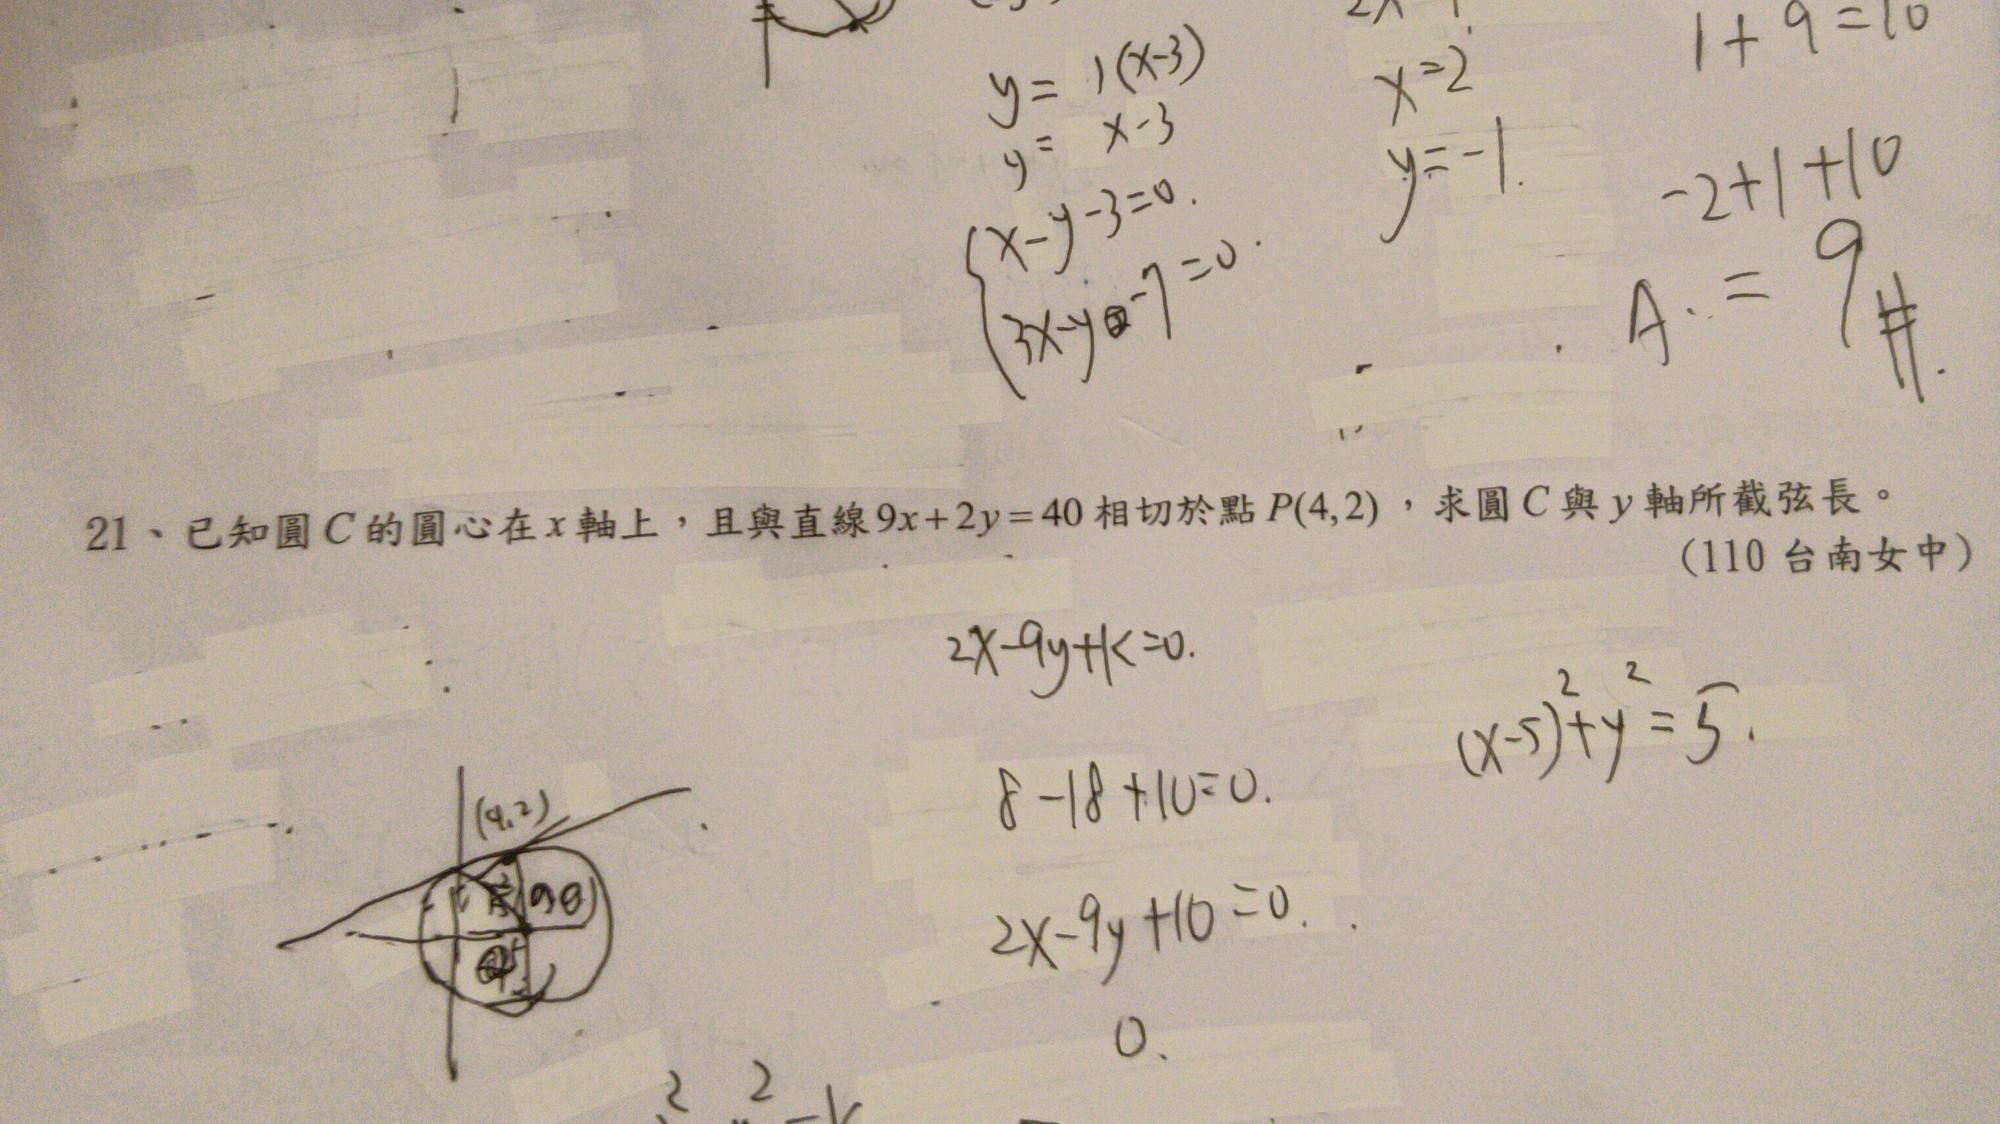 1+9=10
y= 1(x-3)
y= x-3
x=2
y=-1.
-2+1+10
x-y-3=0.
3x-y-7=0.
A. = 9#.
21、已知圓C的圓心在x軸上，且與直線9x+2y=40相切於點P(4,2)，求圓C與y軸所截弦長。
(110 台南女中)
2x-9y+k=0.
(x-5)²+y²=5.
8-18+10=0.
(4,2)
2x-9y+10=0.
0.